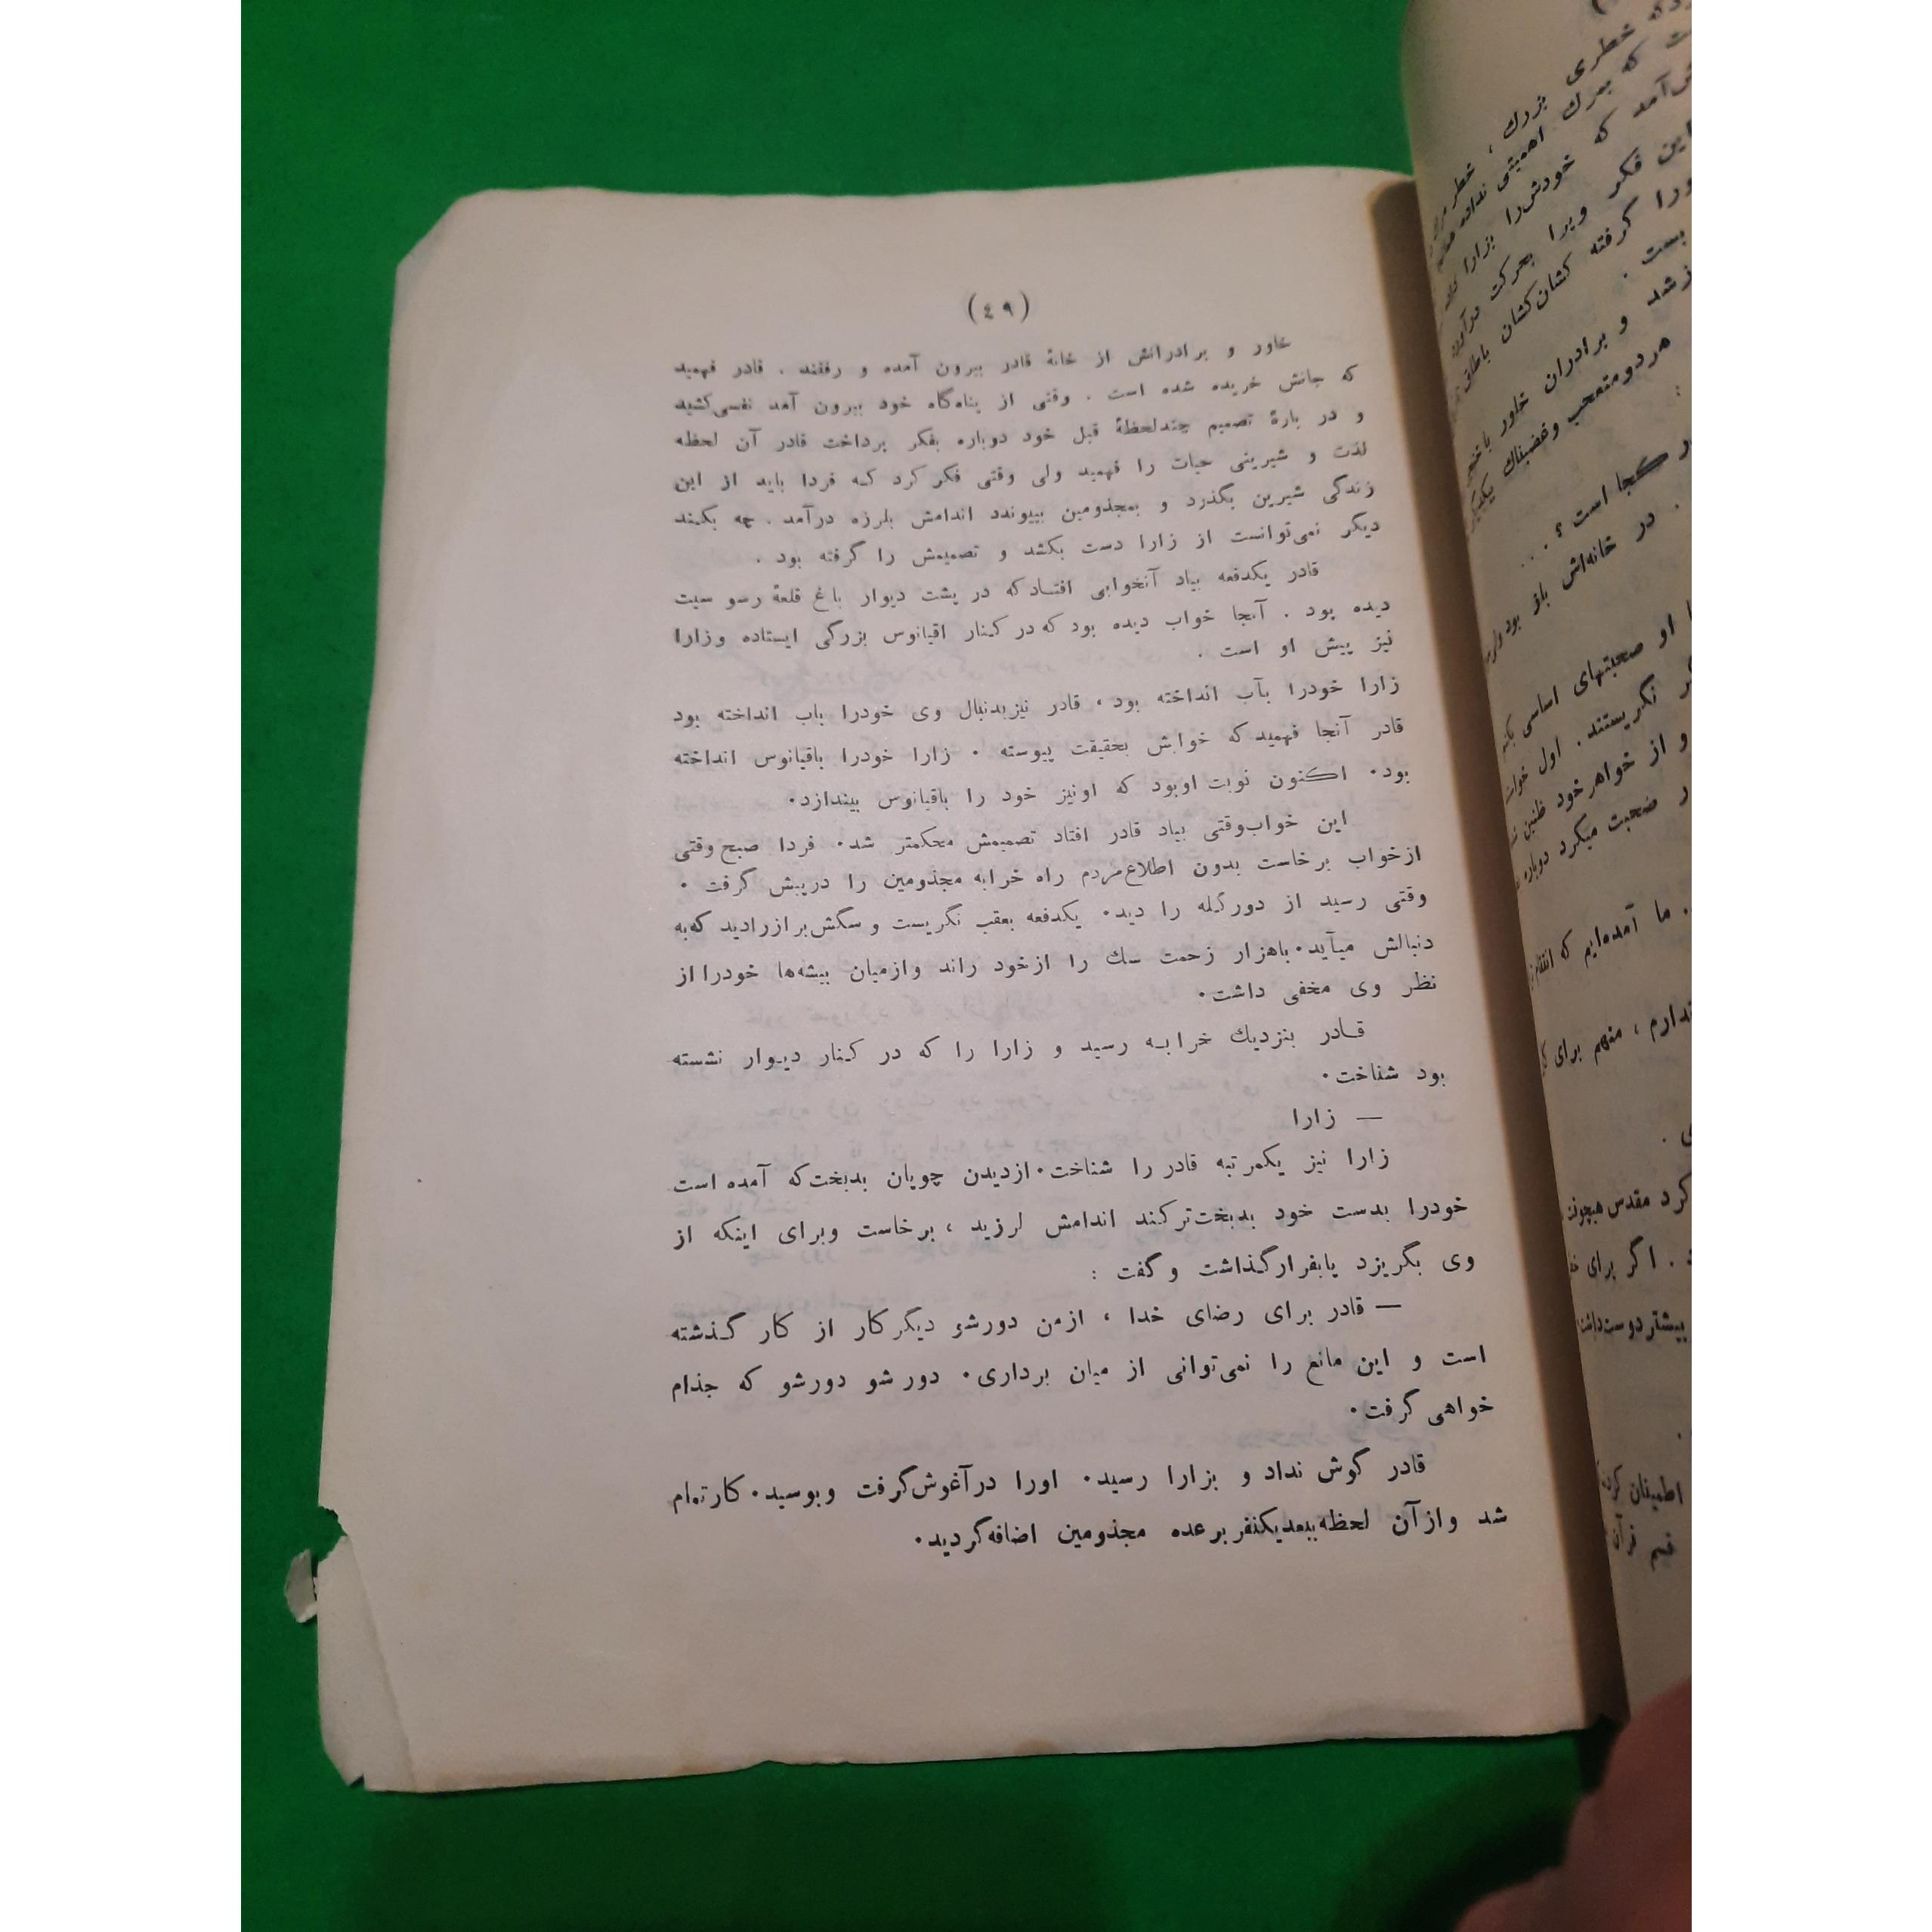 (٤٩)
خاور و برادرانش از خانهٔ قادر بیرون آمده و رفتند . قادر فهمید
که جانش خریده شده است . وقتی از پناه‌گاه خود بیرون آمد نفسی‌کشید
و در بارهٔ تصمیم چندلحظهٔ قبل خود دوباره بفکر پرداخت قادر آن لحظه
لذت و شیرینی حیات را فهمید ولی وقتی فکر کرد که فردا باید از این
زندگی شیرین بگذرد و بمجذومین بپیوندد اندامش بلرزه درآمد . چه بکند
دیگر نمی‌توانست از زارا دست بکشد و تصمیمش را گرفته بود .
قادر یکدفعه بیاد آنخوابی افتاد که در پشت دیوار باغ قلعهٔ رسو سیت
دیده بود . آنجا خواب دیده بود که در کنار اقیانوس بزرگی ایستاده وزارا
نیز پیش او است .
زارا خودرا بآب انداخته بود ، قادر نیز بدنبال وی خودرا باب انداخته بود
قادر آنجا فهمید که خوابش بحقیقت پیوسته . زارا خودرا باقیانوس انداخته
بود. اکنون نوبت اوبود که اونیز خود را باقیانوس بیندازد.
این خواب‌وقتی بیاد قادر افتاد تصمیمش محکمتر شد. فردا صبح وقتی
ازخواب برخاست بدون اطلاع‌مردم راه خرابه مجذومین را درپیش گرفت .
وقتی رسید از دور گیله را دید. یکدفعه بعقب نگریست و سگش برازرادید که‌به
دنبالش میآید. باهزار زحمت سك را ازخود راند وازمیان بیشه‌ها خودرا از
نظر وی مخفی داشت.
قادر بنزدیك خرابه رسید و زارا را که در کنار دیوار نشسته
بود شناخت.
— زارا
زارا نیز یکمرتبه قادر را شناخت. ازدیدن چوپان بدبخت‌که آمده است
خودرا بدست خود بدبخت‌ترکند اندامش لرزید ، برخاست وبرای اینکه از
وی بگریزد پابفرارگذاشت و گفت :
— قادر برای رضای خدا ، ازمن دورشو دیگرکار از کار گذشته
است و این مانع را نمی‌توانی از میان برداری. دور شو دورشو که جذام
خواهی گرفت.
قادر گوش نداد و بزارا رسید. اورا درآغوش‌گرفت وبوسید. کارتمام
شد وازآن لحظه ببعدیکنفر برعده مجذومین اضافه‌گردید.
خطری بزرك ، خطر
که بمرك اهمیتی نداده
که خودش‌را بزارا
این فکر ویرا بحرکت درآورد
گرفته کشان‌کشان باطاق
بست .
و برادران خاور با خنجر
هردومتعجب وغضبناك یکدیگر
کجا است ؟ . . .
. در خانه‌اش باز بود
او صحبتهای اساسی
نگریستند . اول
و از خواهر خود ظنین
صحبت میکرد دوباره
. ما آمده‌ایم که
ندارم ، منهم برای
کرد مقدس هیچوقت
. اگر برای
بیشتر دوست
اطمینان